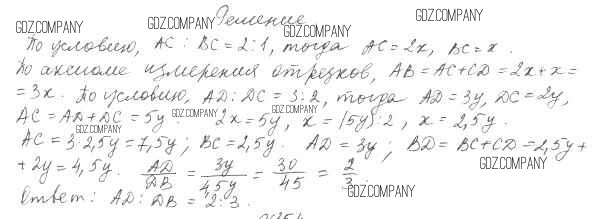 Решение
По условию, AC : BC = 2:1, тогда AC = 2x, BC = x.
По аксиоме измерения отрезков, AB = AC + CD = 2x + x =
= 3x. По условию, AD : DC = 3:2, тогда AD = 3y, DC = 2y,
AC = AD + DC = 5y  2x = 5y, x = (5y) : 2, x = 2,5y.
AC = 3·2,5y = 7,5y; BC = 2,5y. AD = 3y; BD = BC + CD = 2,5y +
+ 2y = 4,5y. AD/DB = 3y/4,5y = 30/45 = 2/3.
Ответ: AD : DB = 2:3.
GDZ.COMPANY
GDZ.COMPANY
GDZ.COMPANY
GDZ.COMPANY
GDZ.COMPANY
GDZ.COMPANY
GDZ.COMPANY
GDZ.COMPANY
GDZ.COMPANY